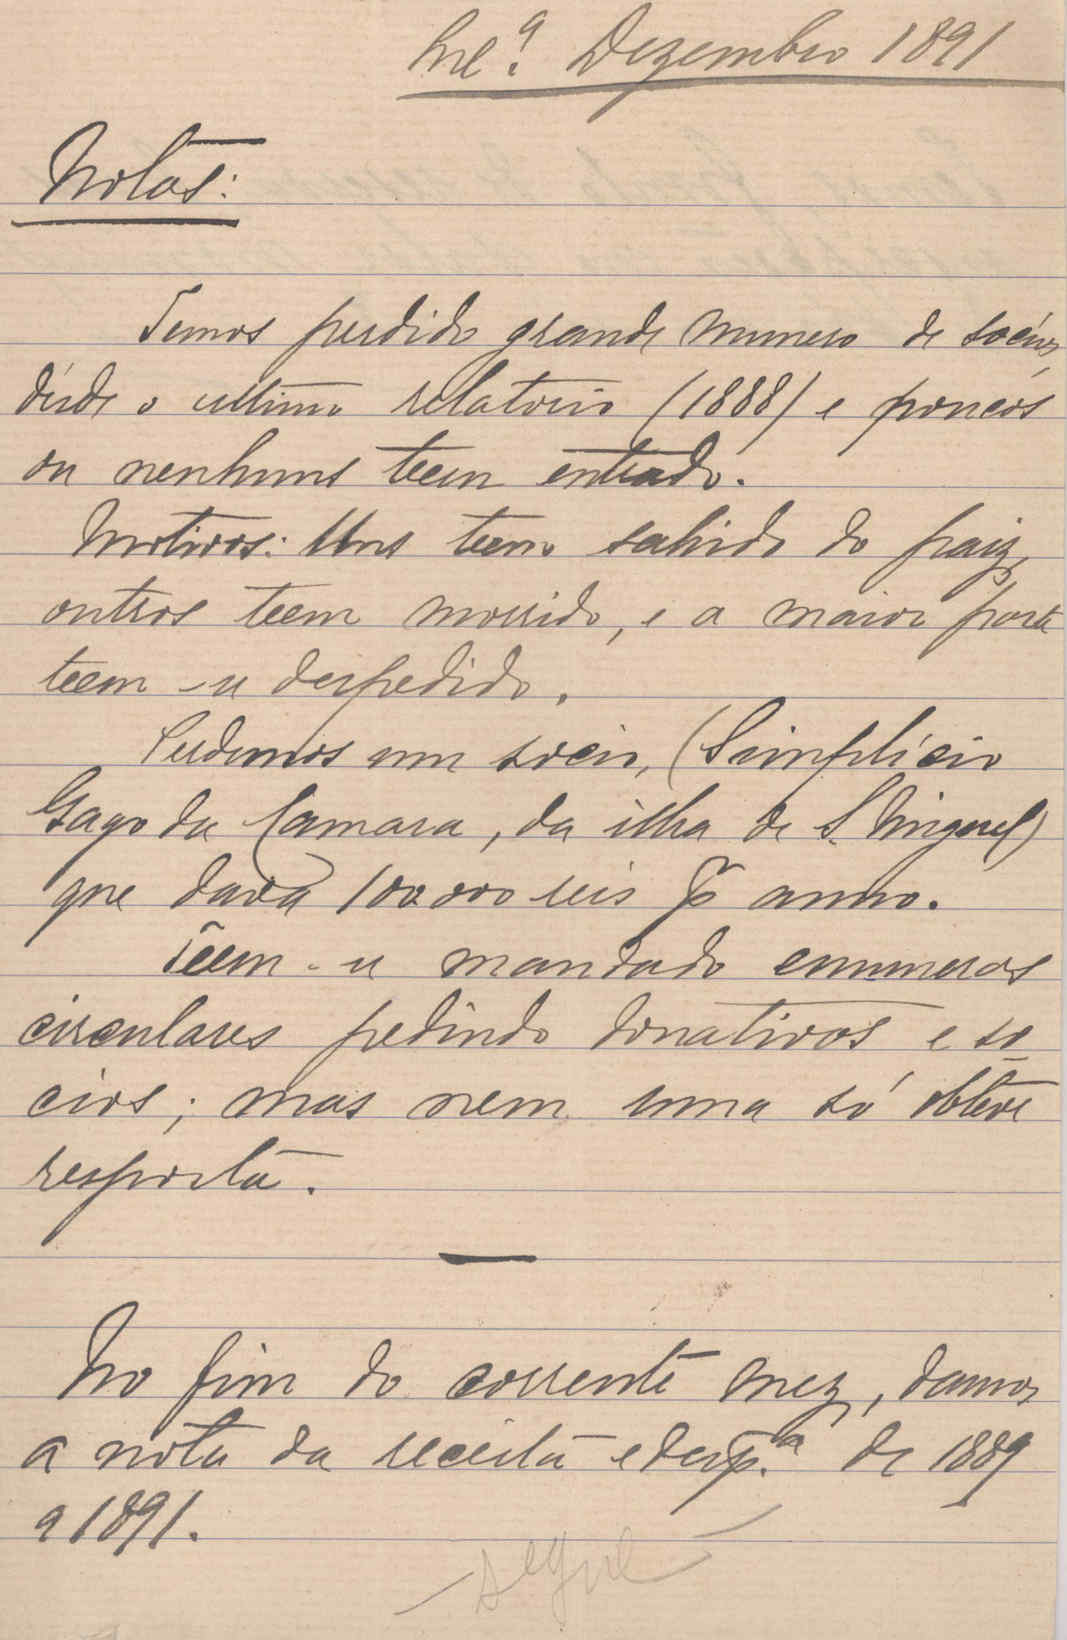 Dezembro 1891
Notas:
Temos perdido grande numero de socios,
désde o ultimo relatorio (1888) e poucos
ou nenhuns teem entrado.
Motivos: Uns teem sahido do paiz,
outros teem morrido, e a maior parte
teem-se despedido.
Perdemos um socio, (Simplicio
Gago da Camara, da ilha de S. Miguel)
que dava 100.000 reis p. anno.
Teem-se mandado enumeras
circulares pedindo donativos e so
cios; mas nem uma só obteve
resposta.
No fim do corrente mez, damos
a nota da receita e desp.ª de 1889
a 1891.
segue